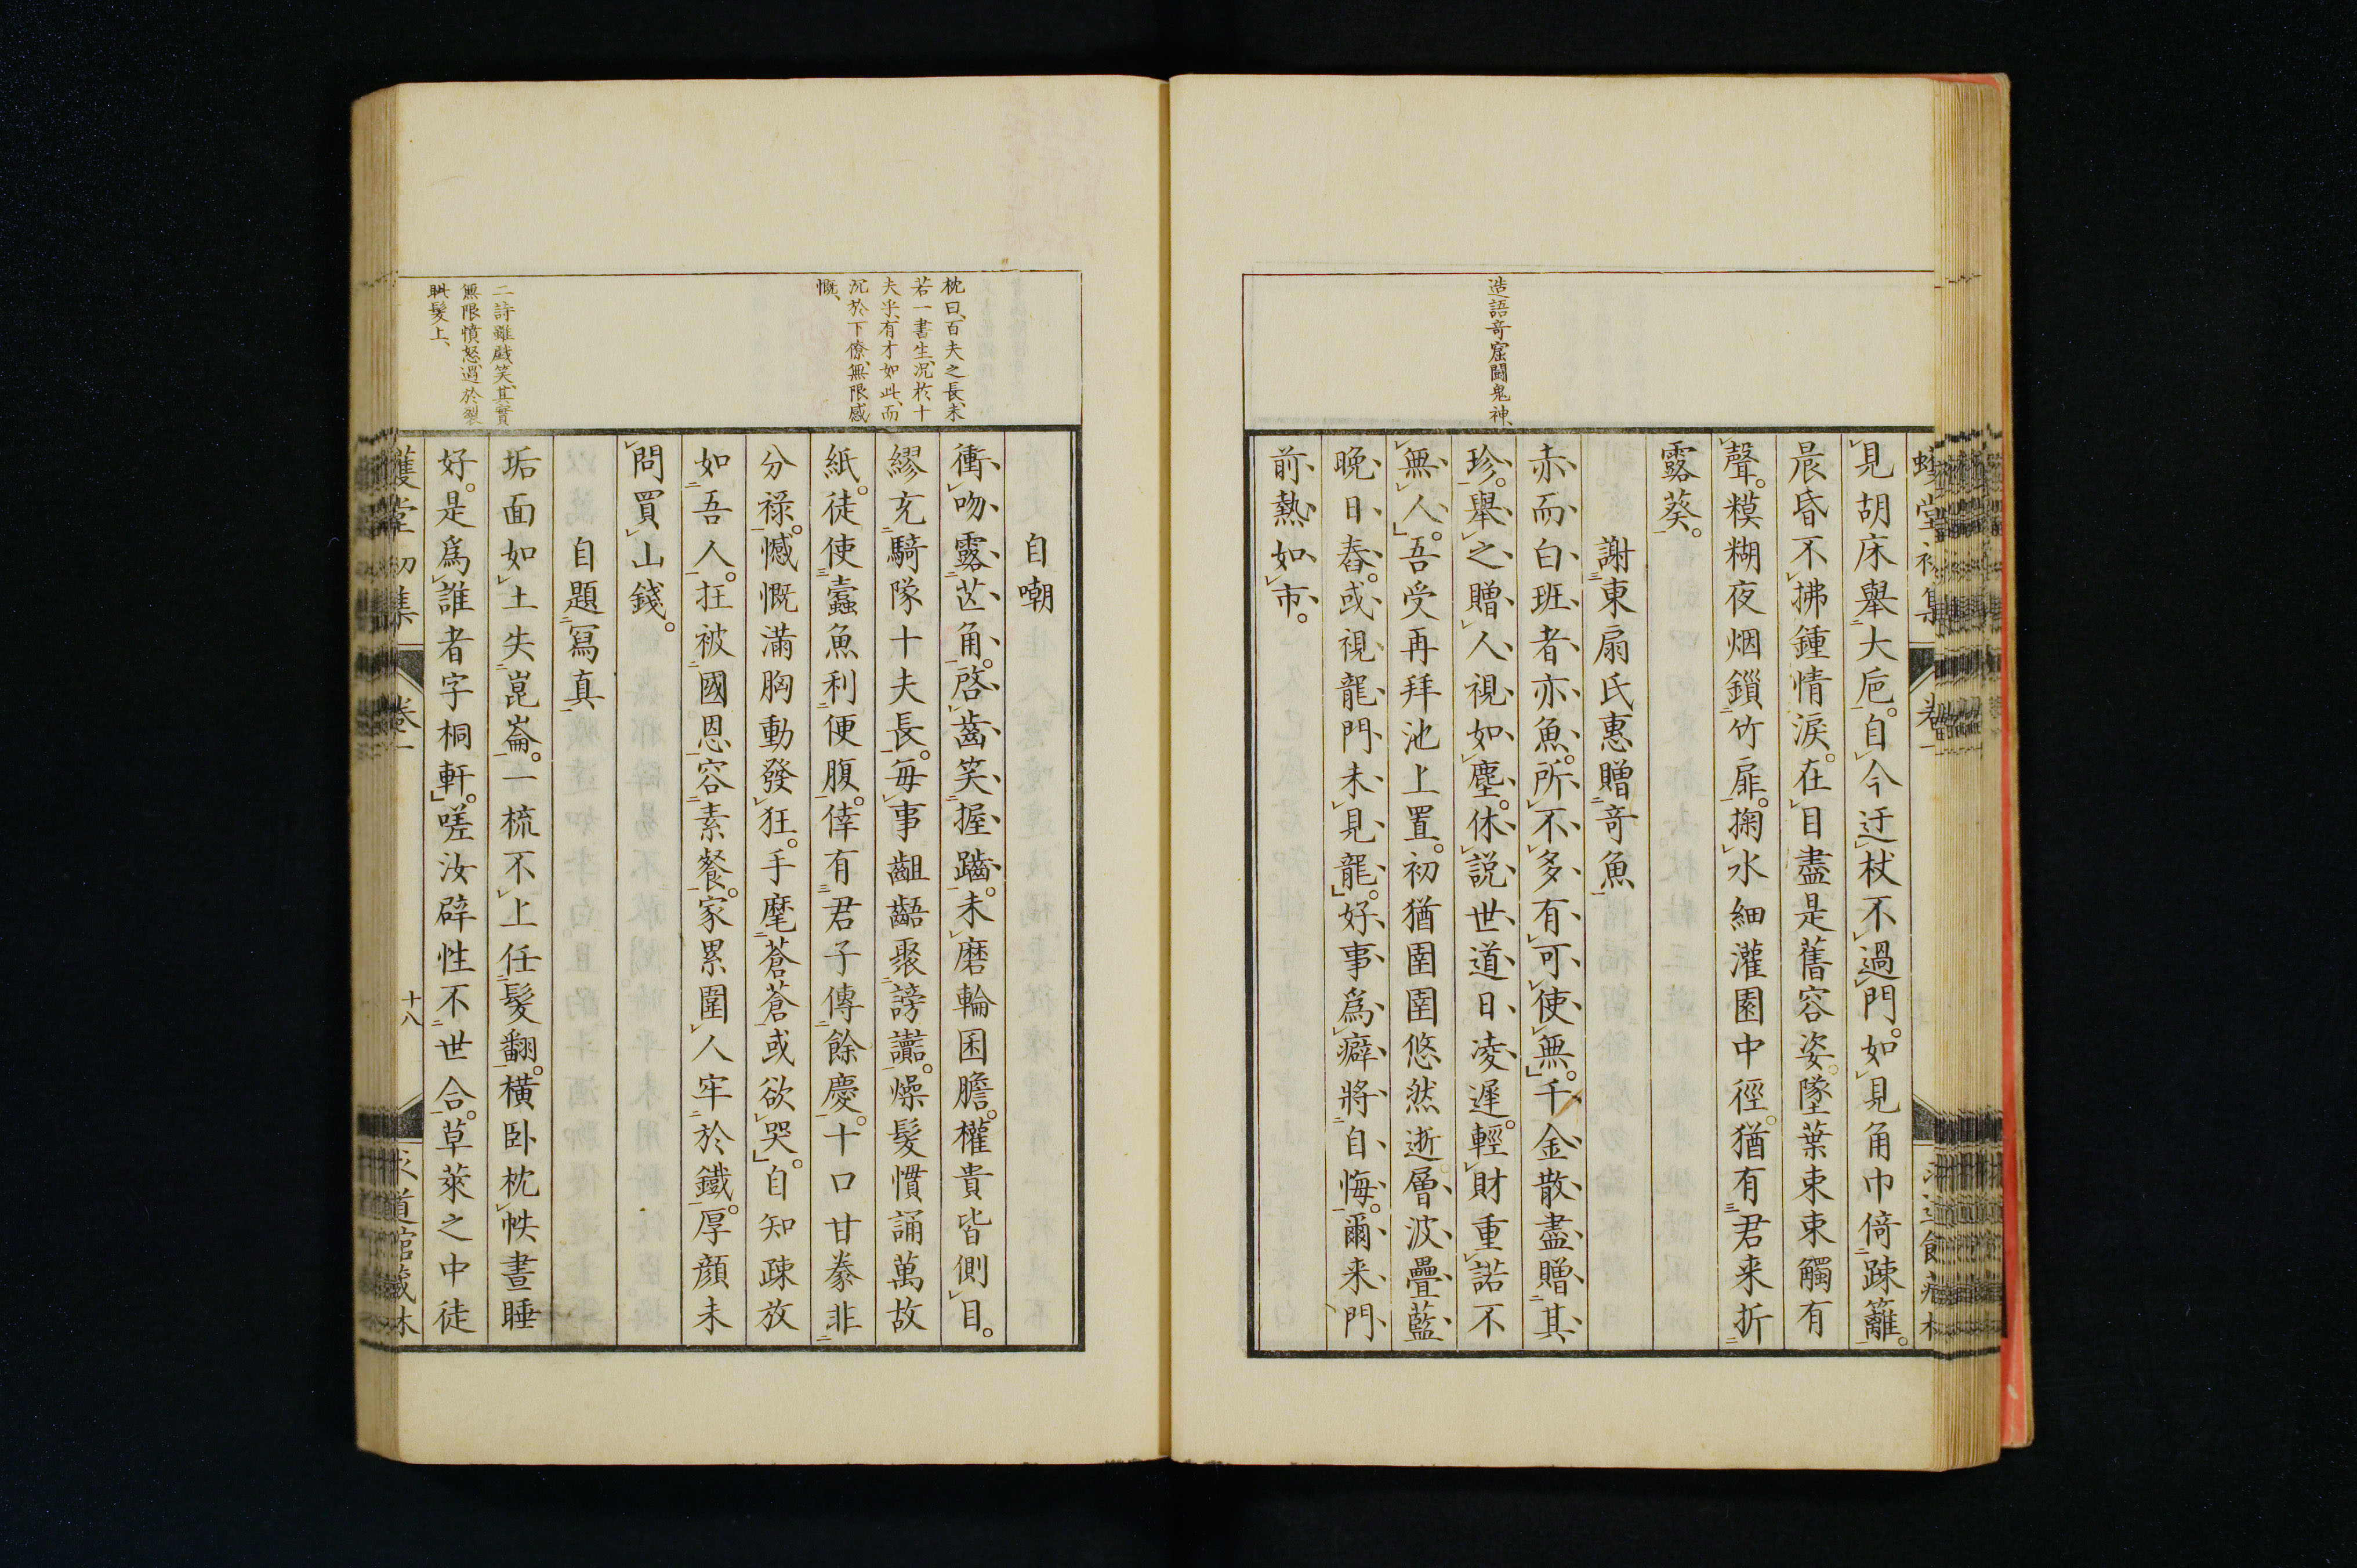 造語奇窟鬪鬼神、
見胡床舉大巵。自今迂杖不過門。如見角巾倚疎籬。
晨昏不拂鍾情淚。在目盡是舊容姿。墜葉東東觸有
聲。糢糊夜烟鎻竹扉。掬水細灌園中徑。猶有君来折
露葵。
謝東扇氏惠贈奇魚
赤而白班者亦魚。所不多有可使無。千金散盡贈其
珍。舉之贈人視如塵。休説世道日凌遅。輕財重諾不
無人。吾受再拜池上置。初猶圉圉悠然逝。層波疊藍
晩日舂。或視龍門未見龍。好事爲癖將自悔。爾来門
前熱如市。
枕曰、百夫之長、未
若一書生、況於十
夫乎、有才如此、而
沉於下僚、無限感
慨、
二詩雖戲笑、其實
無限憤怒、過於裂
眦髮上、
自嘲
衝吻露芒角。啓齒笑握齪。未磨輪囷膽。權貴皆側目。
繆充騎隊十夫長。毎事齟齬聚謗讟。燥髮慣誦萬故
紙。徒使蠹魚利便腹。倖有君子傳餘慶。十口甘豢非
分禄。憾慨滿胸動發狂。手麾蒼蒼或欲哭。自知疎放
如吾人。狂被國恩容素餐。家累圍人牢於鐵。厚顔未
問買山錢。
自題寫真
垢面如土失崑崙。一梳不上任髮翻。横卧枕帙晝睡
好。是爲誰者字桐軒。嗟汝辟性不世合。草萊之中徒
堂初集
卷一
十八
求道館藏本